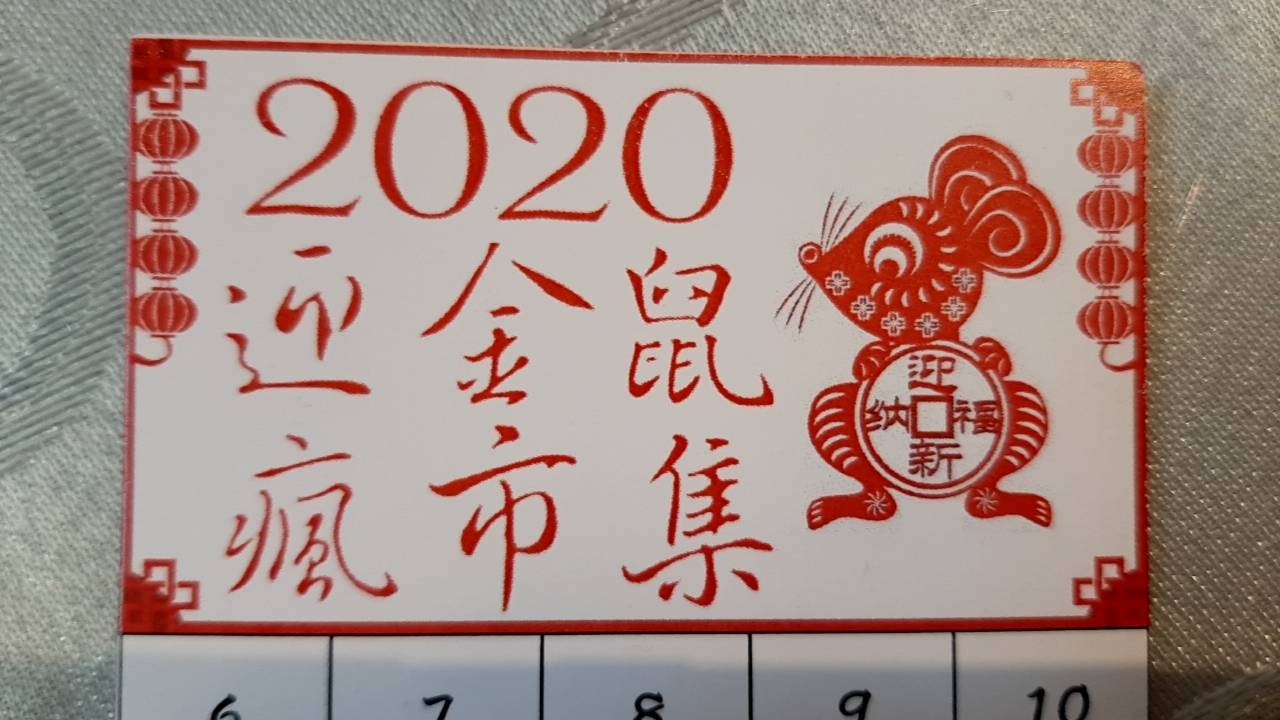 2020
迎金鼠
瘋市集
迎新纳福
6 7 8 9 10